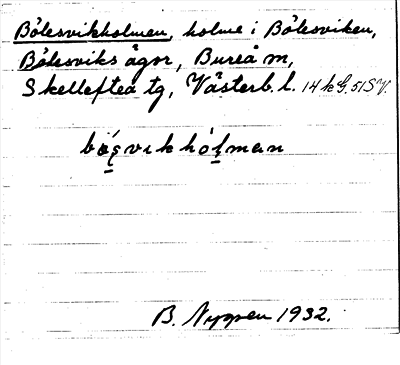 Bölesvikholmen, holme i Bölesviken,
Bölesviks ägor, Bureå m,
Skellefteå tg, Västerb. l. 14 k G. 51 S V.
bó̱ʂvikhó̱ɭman
B. Nygren 1932.